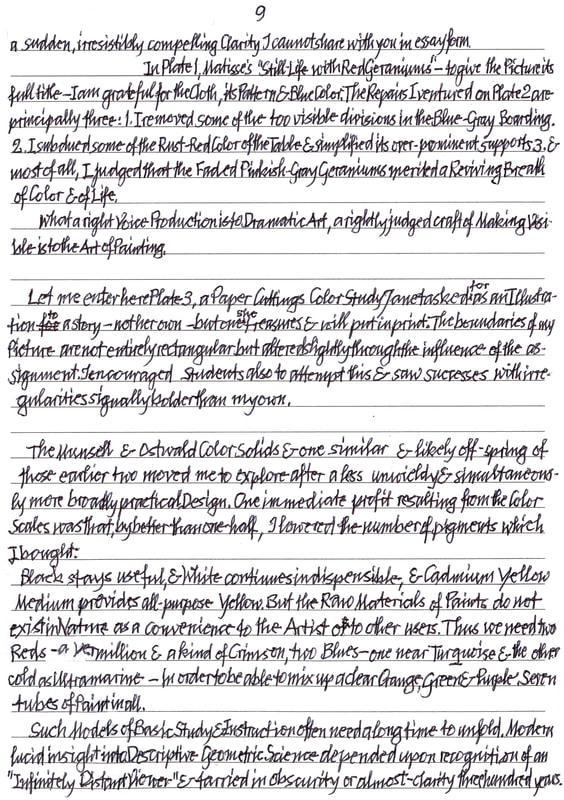 9
a sudden, irresistibly compelling Clarity I cannot share with you in essay form.
In Plate 1, Matisse's "Still-Life with Red Geraniums" – to give the Picture its
full title – I am grateful for the Cloth, its Pattern & Blue Color. The Repairs I ventured on Plate 2 are
principally three: 1. I removed some of the too visible divisions in the Blue-Gray Boarding.
2. I subdued some of the Rust-Red Color of the Table & simplified its over-prominent supports 3. &
most of all, I judged that the Faded Pinkish-Gray Geraniums merited a Reviving Breath
of Color & of Life.
What a right Voice Production is to Dramatic Art, a rightly judged craft of Making Visi-
ble is to the Art of Painting.
Let me enter here Plate 3, a Paper Cuttings Color Study Jane asked for as an Illustra-
tion to a story – not her own – but one she treasures & will put in print. The boundaries of my
Picture are not entirely rectangular but altered slightly through the influence of the as-
signment. I encouraged students also to attempt this & saw successes with irre-
gularities signally bolder than my own.
The Munsell & Ostwald Color Solids & one similar & likely off-spring of
those earlier two moved me to explore after a less unwieldy & simultaneous-
ly more broadly practical Design. One immediate profit resulting from the Color
Scales was that, by better than one-half, I lowered the number of pigments which
I bought:
Black stays useful, & White continues indispensible, & Cadmium Yellow
Medium provides all-purpose Yellow. But the Raw Materials of Paints do not
exist in Nature as a convenience to the Artist or to other users. Thus we need two
Reds – a Vermillion & a kind of Crimson, two Blues – one near Turquoise & the other
cold as Ultramarine – in order to be able to mix up a clear Orange, Green & Purple. Seven
tubes of Paint in all.
Such Models of Basic Study & Instruction often need a long time to unfold. Modern
lucid insight into Descriptive Geometric Science depended upon recognition of an
"Infinitely Distant Viewer" & tarried in obscurity or almost-clarity three hundred years.